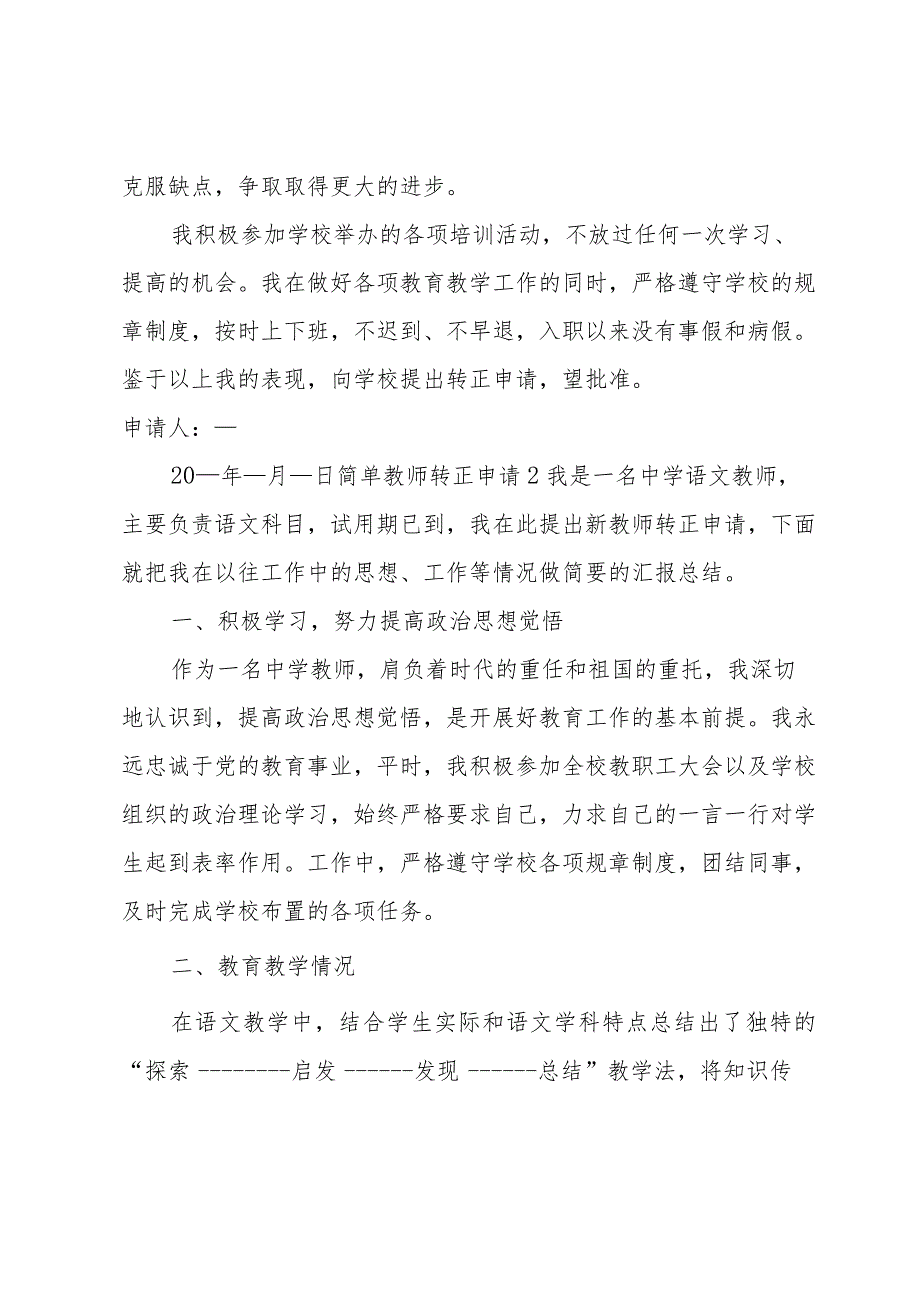 克服缺点，争取取得更大的进步。
我积极参加学校举办的各项培训活动，不放过任何一次学习、
提高的机会。我在做好各项教育教学工作的同时，严格遵守学校的规
章制度，按时上下班，不迟到、不早退，入职以来没有事假和病假。
鉴于以上我的表现，向学校提出转正申请，望批准。
申请人：—
20—年—月—日简单教师转正申请 2 我是一名中学语文教师，
主要负责语文科目，试用期已到，我在此提出新教师转正申请，下面
就把我在以往工作中的思想、工作等情况做简要的汇报总结。
一、积极学习，努力提高政治思想觉悟
作为一名中学教师，肩负着时代的重任和祖国的重托，我深切
地认识到，提高政治思想觉悟，是开展好教育工作的基本前提。我永
远忠诚于党的教育事业，平时，我积极参加全校教职工大会以及学校
组织的政治理论学习，始终严格要求自己，力求自己的一言一行对学
生起到表率作用。工作中，严格遵守学校各项规章制度，团结同事，
及时完成学校布置的各项任务。
二、教育教学情况
在语文教学中，结合学生实际和语文学科特点总结出了独特的
“探索 --------启发 ------发现 ------总结”教学法，将知识传